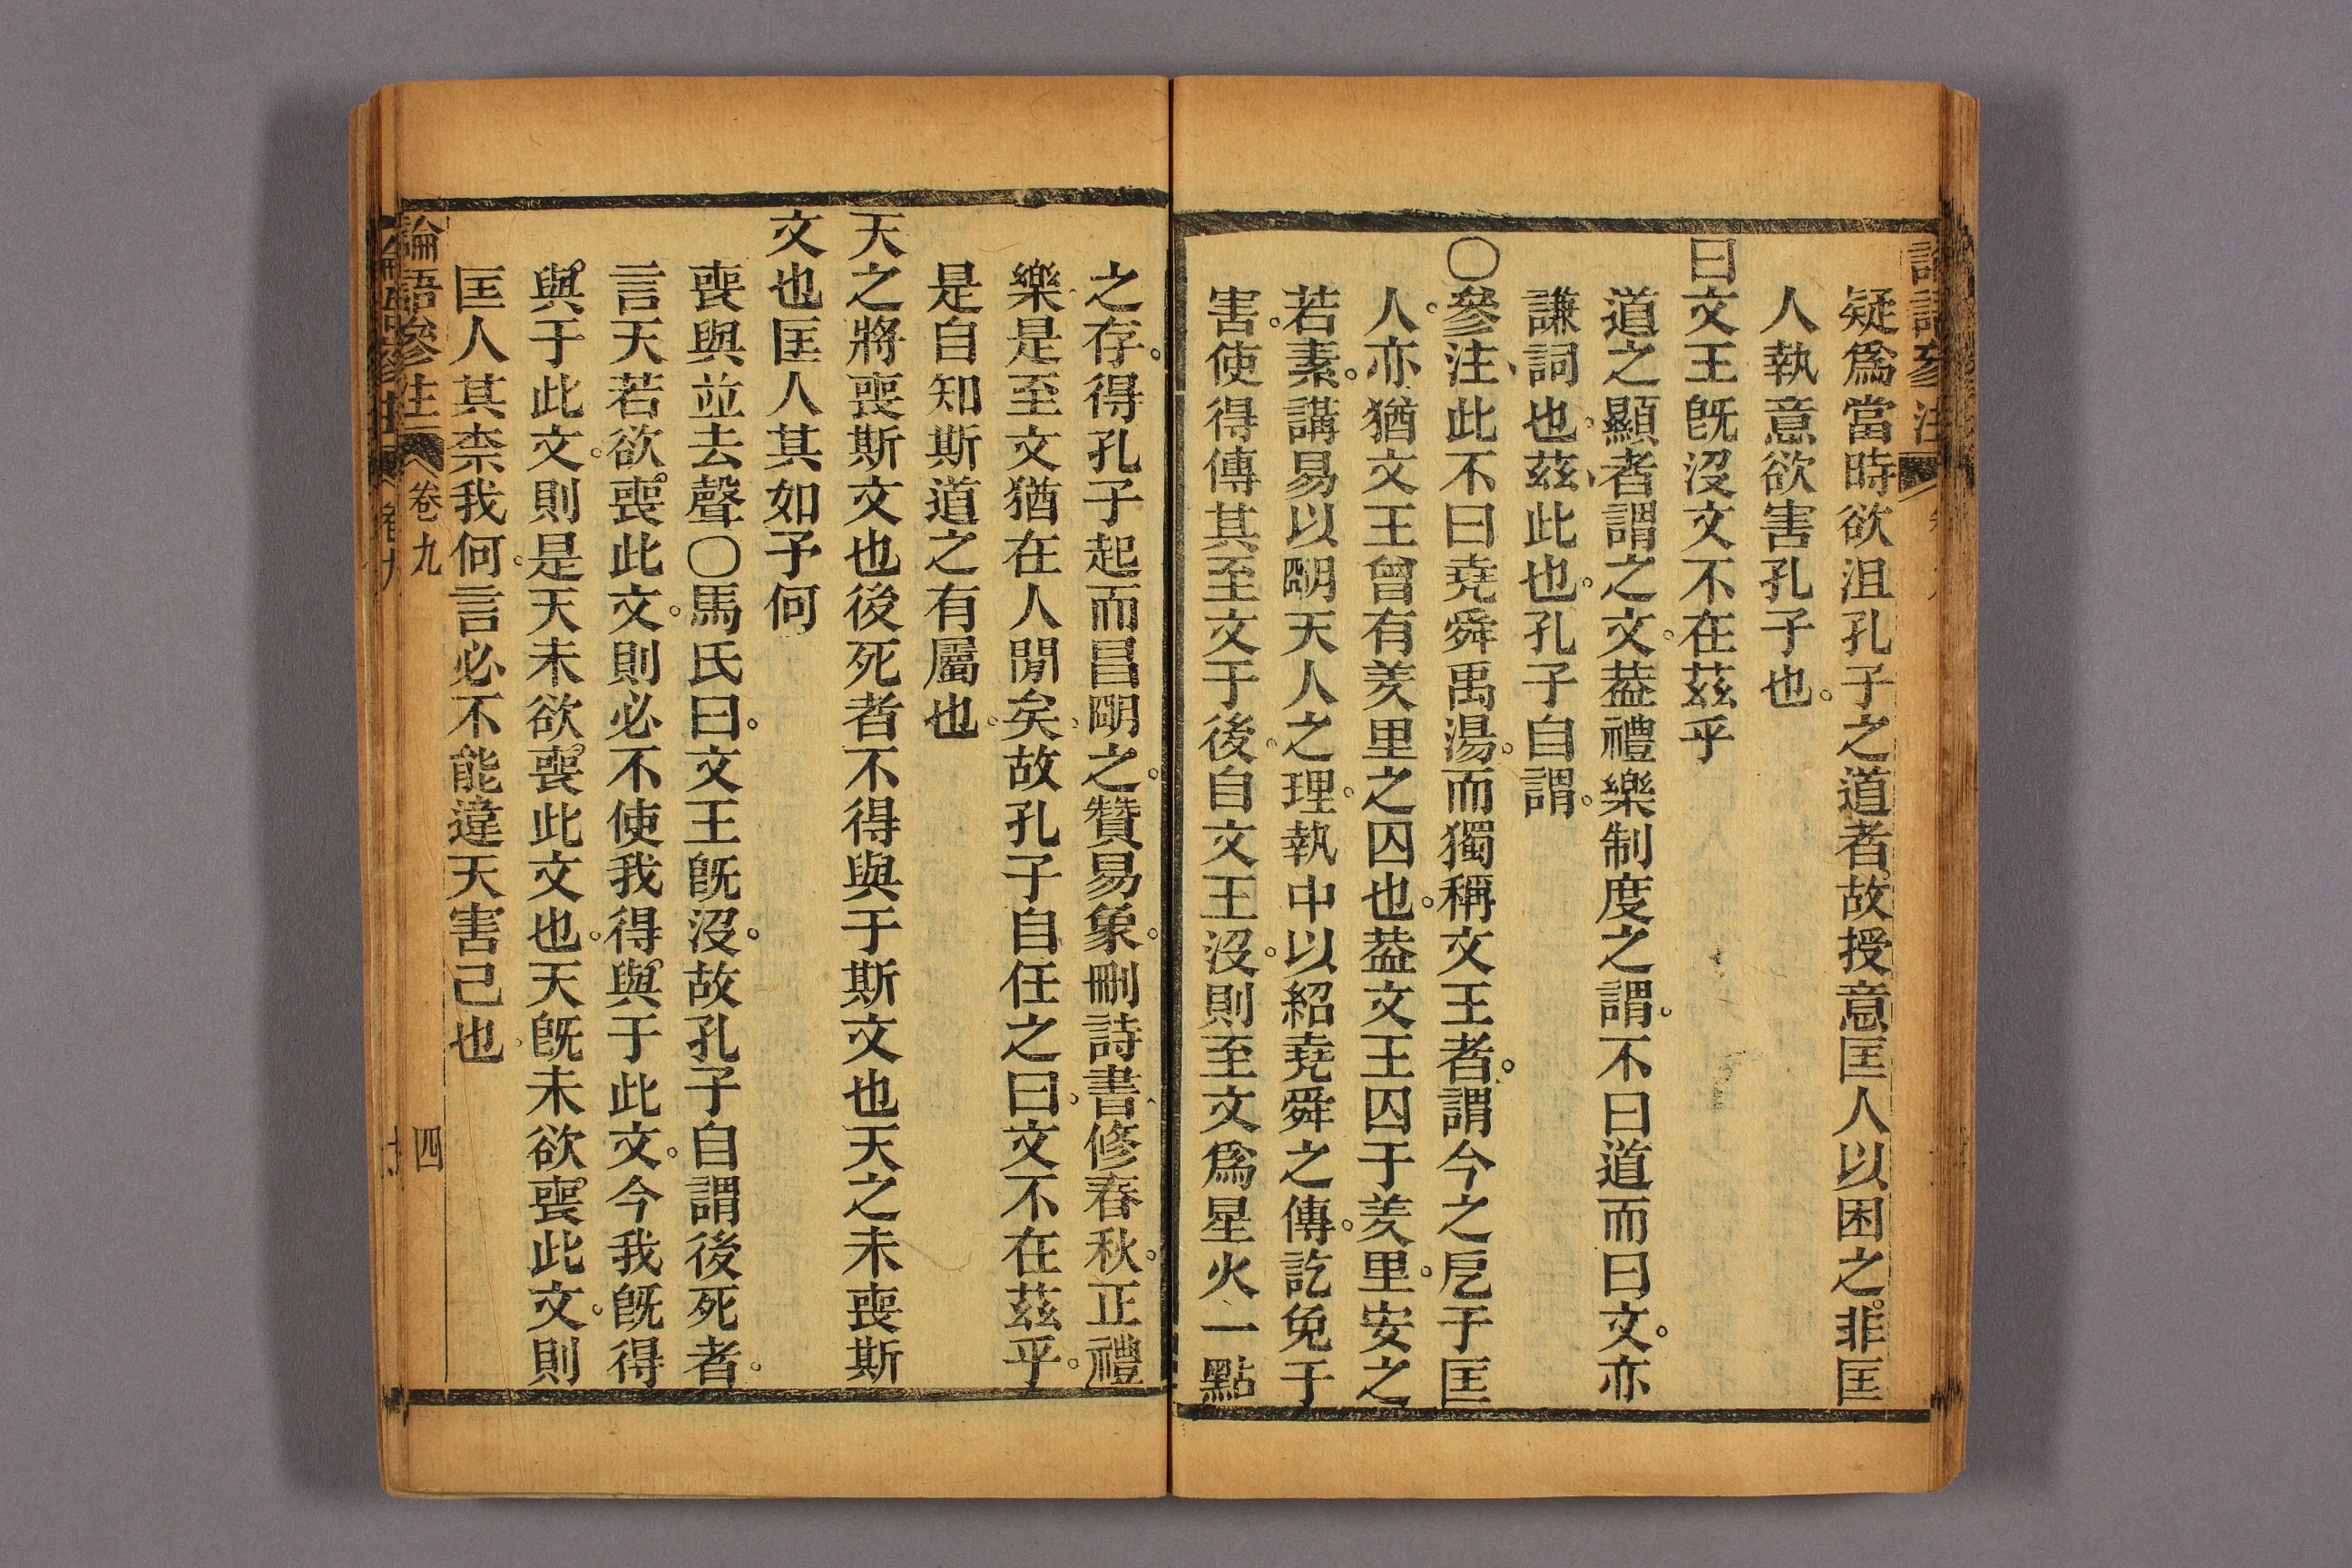 疑爲當時欲沮孔子之道者。故授意匡人以困之。非匡
人執意欲害孔子也。
曰文王旣沒文不在茲乎
道之顯者謂之文。葢禮樂制度之謂。不曰道而曰文。亦
謙詞也。茲此也。孔子自謂。
○參注、此不曰堯舜禹湯。而獨稱文王者。謂今之戹于匡
人。亦猶文王曾有羑里之囚也。葢文王囚于羑里。安之
若素。講易以朙天人之理。執中以紹堯舜之傳。訖免于
害。使得傳其至文于後。自文王沒。則至文爲星火一點
之存。得孔子起而昌朙之。贊易象。刪詩書、修春秋。正禮
樂、是至文猶在人閒矣、故孔子自任之曰。文不在茲乎。
是自知斯道之有屬也。
天之將喪斯文也後死者不得與于斯文也天之未喪斯
文也匡人其如予何
喪與並去聲○馬氏曰。文王旣沒。故孔子自謂後死者。
言天若欲喪此文。則必不使我得與于此文。今我旣得
與于此文。則是天未欲喪此文也。天旣未欲喪此文。則
匡人其柰我何。言必不能違天害己也、
論語參注 卷九 四